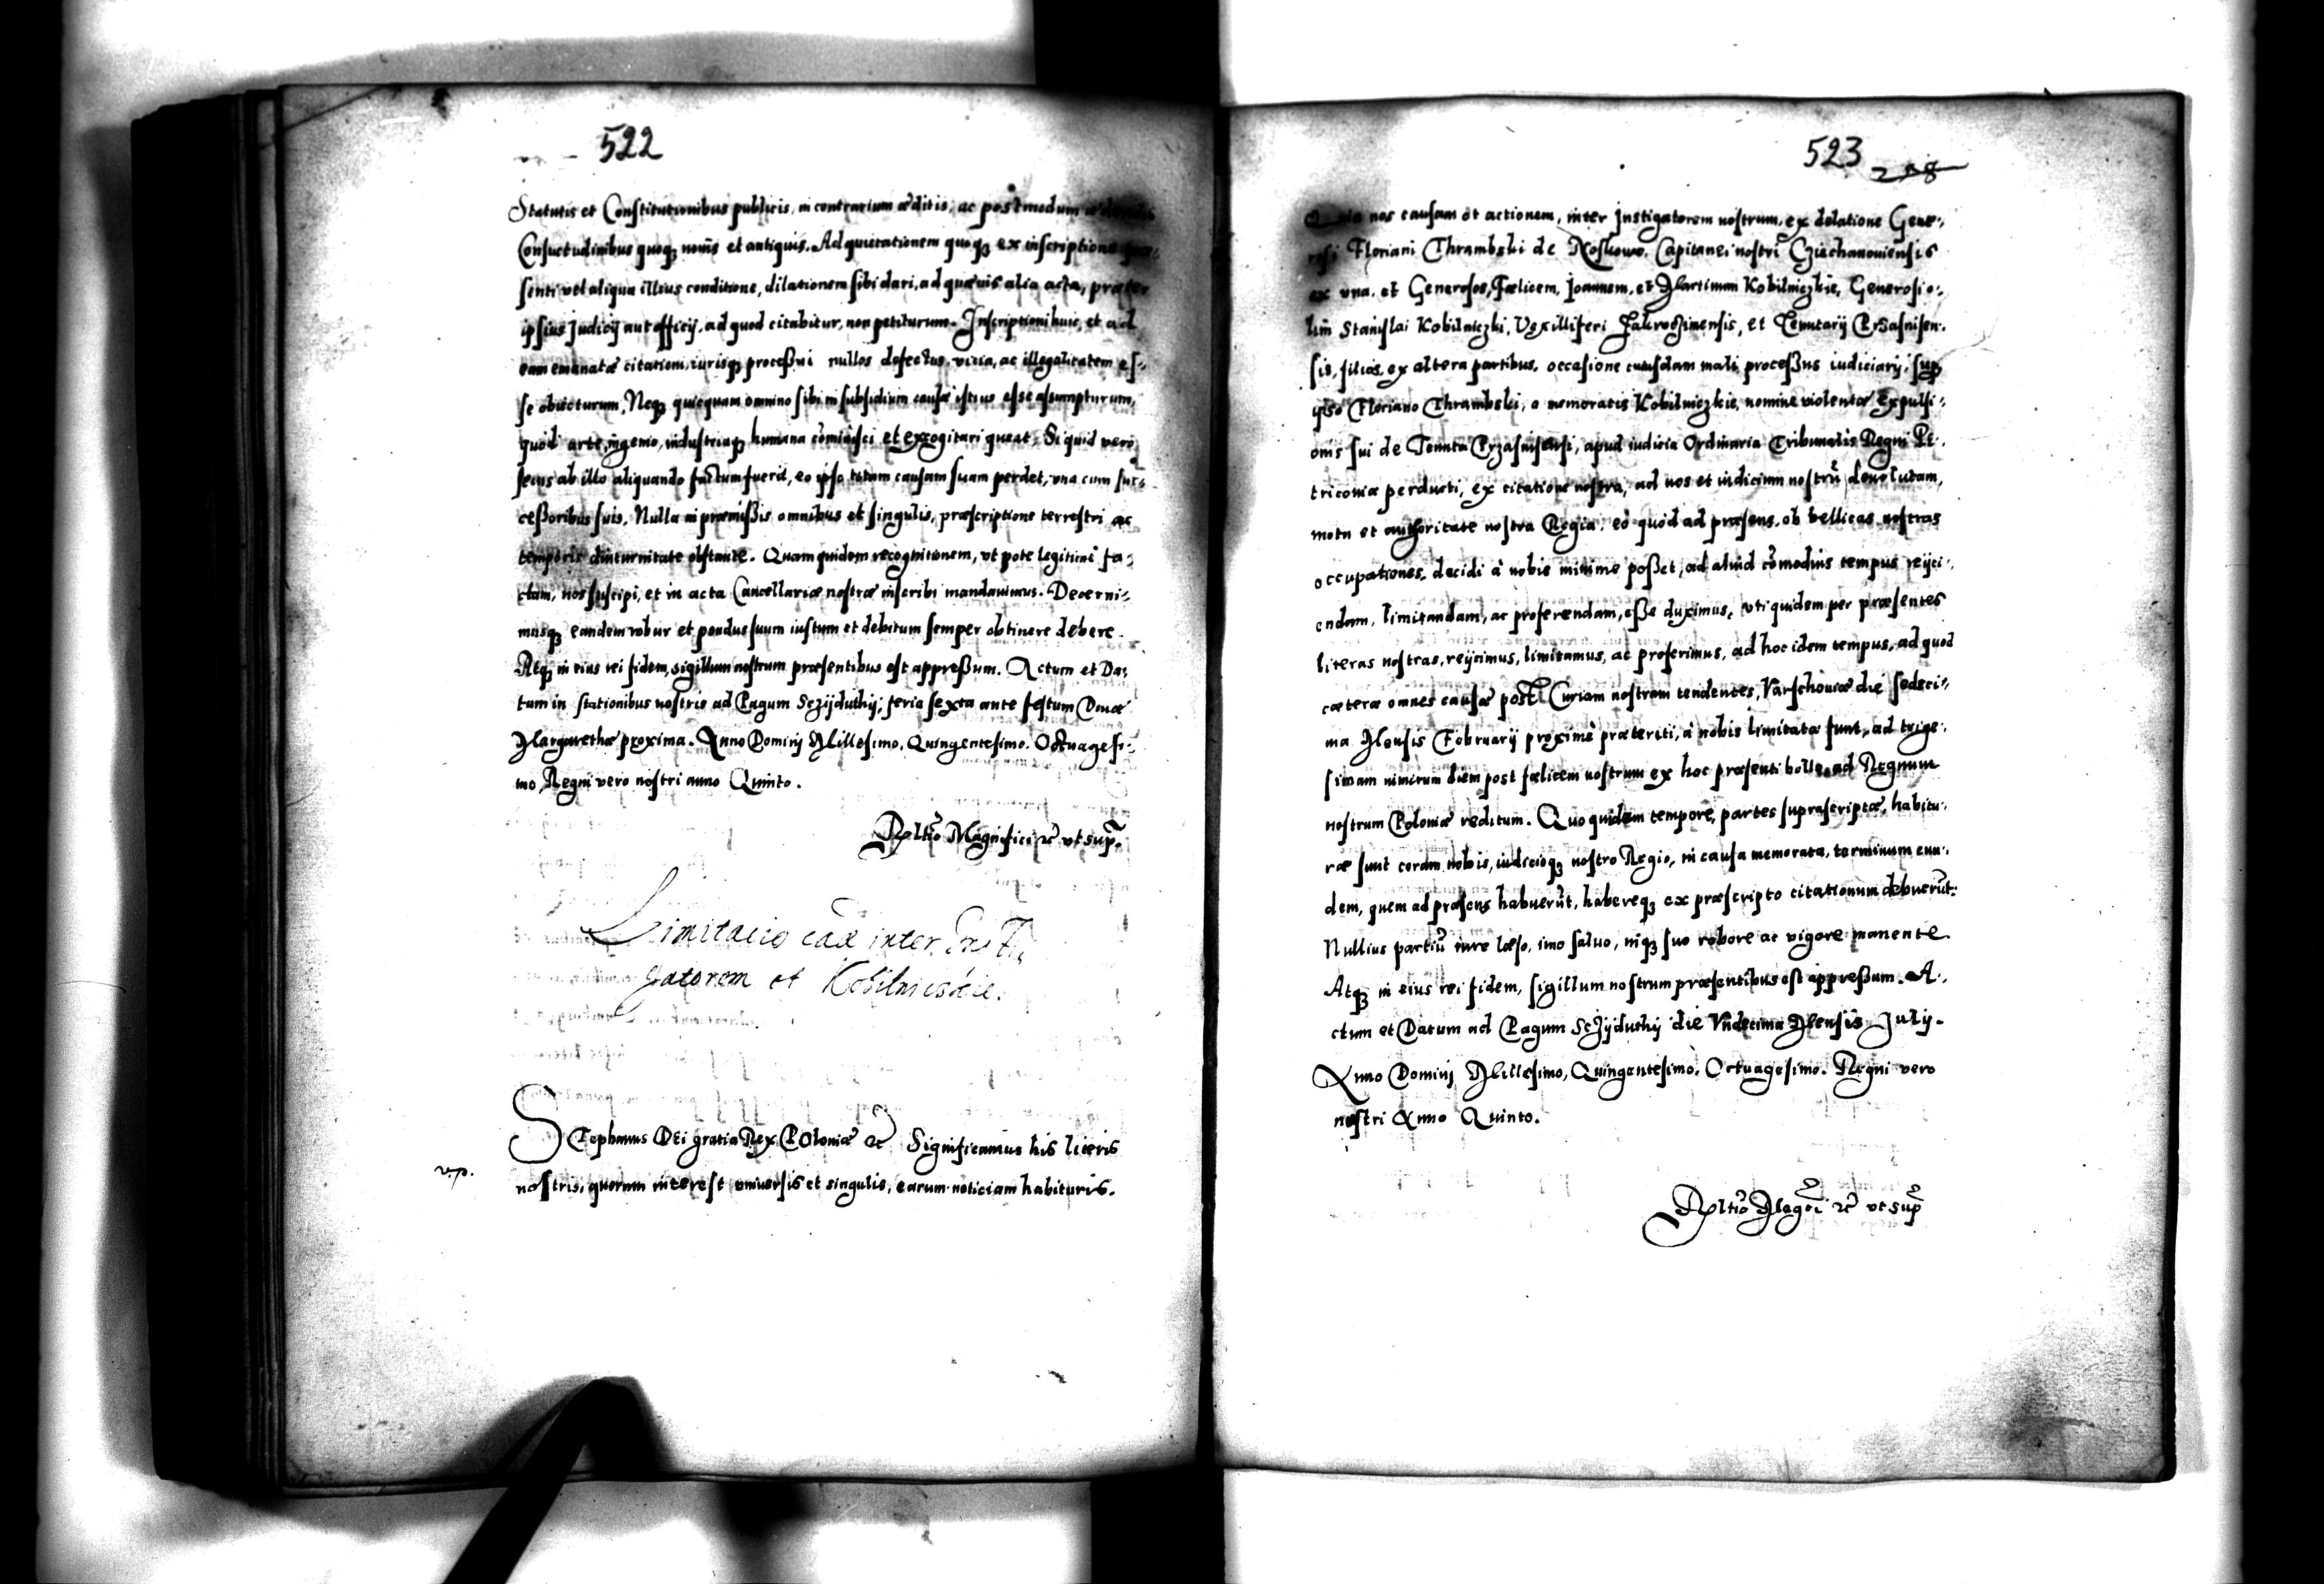 522
Statutis et Constitutionibus publicis, in contrarium æditis, ac postmodum
Consuetudinibus quoqꝫ novis et antiquis. Ad quietationem quoqꝫ ex inscriptione præ-
senti vel aliqua illius conditione, dilationem sibi dari, ad quævis alia acta, præter
ipsius Judicij aut officij, ad quod citabitur, non petiturum. Inscriptioni huic, et ad
eam emanatæ citationi, iurisqꝫ processui nullos defectus, vicia, ac illegalitatem es-
se obiecturum, Neqꝫ quicquam omnino sibi in subsidium causæ istius esse assumpturum,
quod arte, ingenio, industriaqꝫ humana cōminisci et excogitari queat. Si quid vero
secus ab illo aliquando factum fuerit, eo ipso totam causam suam perdet, vna cum suc-
cessoribus suis. Nulla in præmissis omnibus et singulis, præscriptione terrestri ac
temporis diuturnitate obstante. Quam quidem recognitionem, vt pote legitime fa-
ctam, nos suscipi, et in acta Cancellariæ nostræ inscribi mandauimus. Decerni-
musqꝫ eandem robur et pondus suum iustum et debitum semper obtinere debere.
Atqꝫ in eius rei fidem, sigillum nostrum præsentibus est appressum. Actum et Da-
tum in stationibus nostris ad Pagum Sczijduthij, feria sexta ante festum Diuæ
Margarethæ proxima. Anno Dominj Millesimo, Quingentesimo. Octuagesi-
mo, Regni vero nostri anno Quinto.
Rltio Magnifici ꝛc vt sup.
Limitacio cāæ inter Insti
gatorem et Kobilniczkie.
Stephanus Dei gratia Rex Poloniæ ꝛc Significamus his literis
v.p.
nostris, quorum interest vniuersis et singulis, earum noticiam habituris.
523
Quia nos causam et actionem, inter Instigatorem nostrum, ex delatione Gene-
rosi Floriani Thrambski de Noskowo, Capitanei nostri Cziechanouiensis
ex vna, et Generosos, Fælicem, Joannem, et Martinum Kobilniczkie, Generosi o-
lim Stanislai Kobilniczki, Vexilliferi Zakroczimensis, et Tenutarij Przasnisen-
sis, filios, ex altera partibus, occasione cuiusdam mali, processus iudiciarij, sup
ipso Floriano Thrambski, a memoratis Kobilniczkie, nomine violentæ expulsi-
onis sui de Tenuta Przasnisensi, apud iudicia Ordinaria Tribunalis Regni Pe-
triconiæ perducti, ex citatione nostra, ad nos et iudicium nostrū deuolutam,
motu et authoritate nostra Regia, eò quòd ad præsens, ob bellicas nostras
occupationes, decidi à nobis minime posset, ad aliud cōmodius tempus reijci-
endam, limitandam, ac proferendam, esse duximus, vti quidem per præsentes
literas nostras, reijcimus, limitamus, ac proferimus, ad hoc idem tempus, ad quod
cæteræ omnes causæ post Curiam nostram tendentes, Varschouiæ die sedeci-
ma Mensis Februarij proximè præteriti, à nobis limitatæ sunt, ad trige-
simam nimirum diem post fælicem nostrum ex hoc præsenti bello, ad Regnum
nostrum Poloniæ reditum. Quo quidem tempore, partes suprascriptæ, habitu-
ræ sunt coram nobis, iudicioqꝫ nostro Regio, in causa memorata, terminum eun-
dem, quem ad præsens habuerūt, habereqꝫ ex præscripto citationum debuerūt.
Nullius partiū iure læso, imo saluo, inqꝫ suo robore ac vigore manente.
Atqꝫ in eius rei fidem, sigillum nostrum præsentibus est appressum. A-
ctum et Datum ad Pagum Sczijduthij die Vndecima Mensis Julij.
Anno Dominj Millesimo, Quingentesimo, Octuagesimo. Regni vero
nostri Anno Quinto.
Rltio Magci ꝛc vt sup